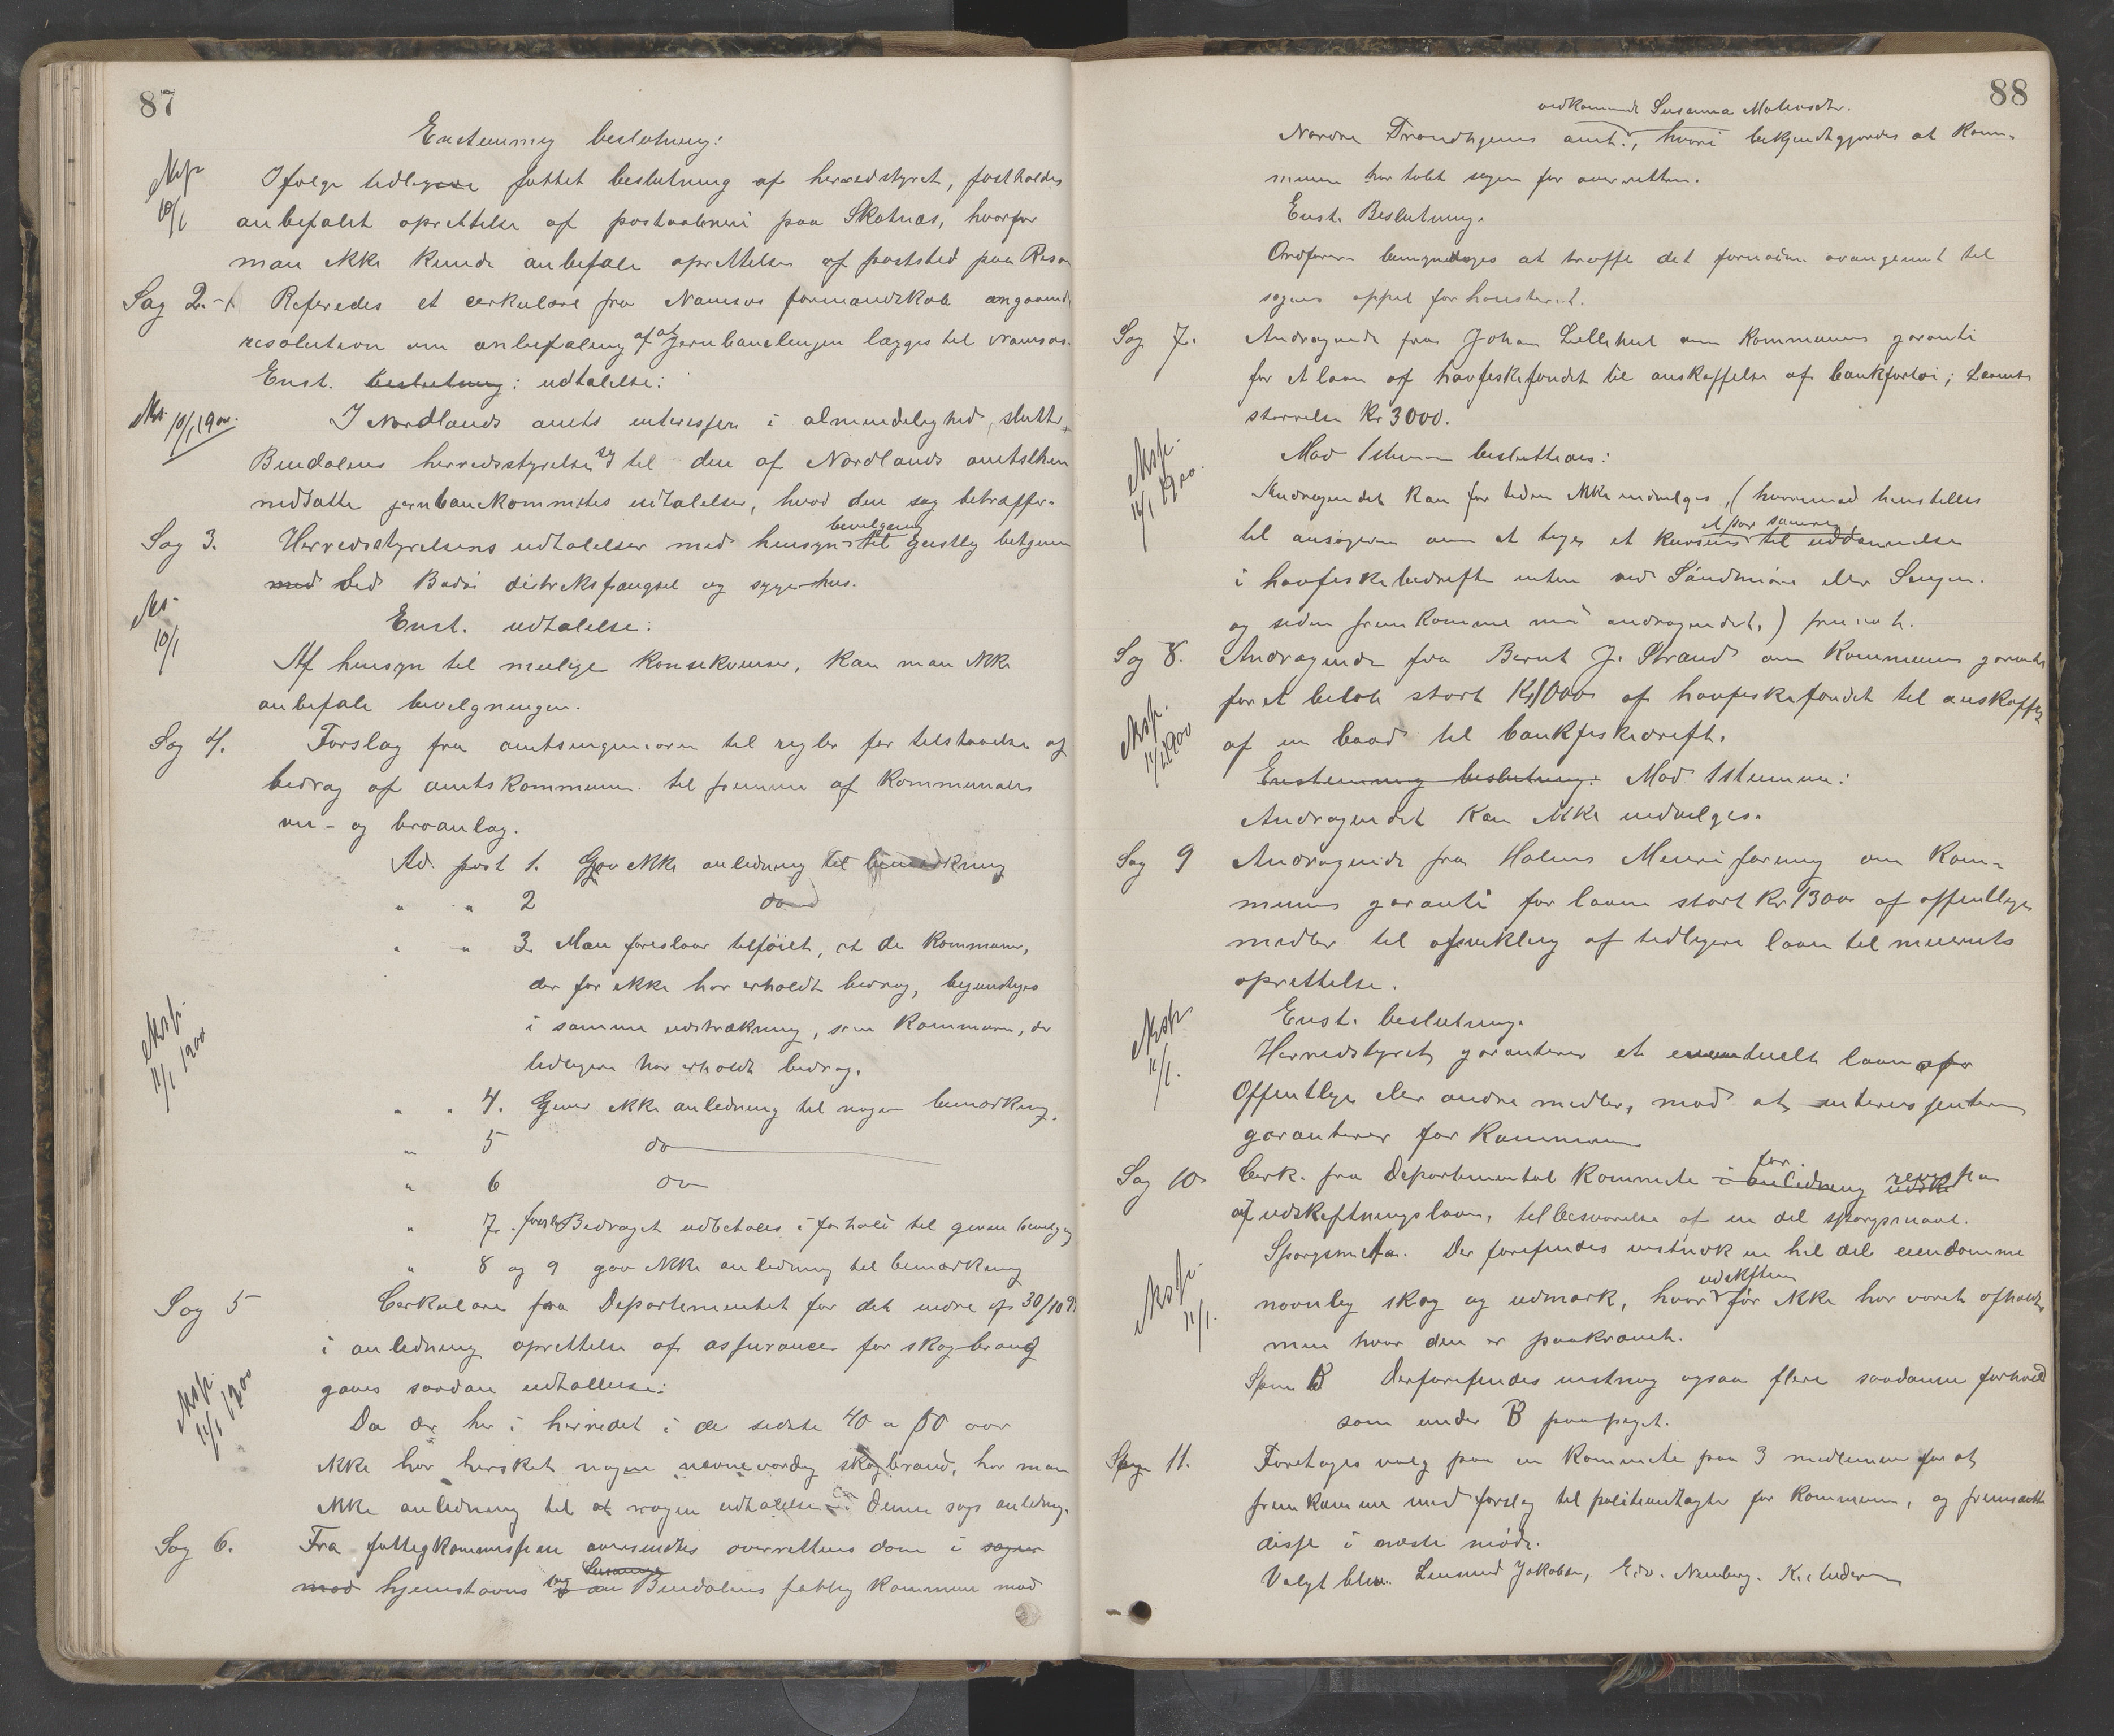 87
Enstemmig beslutning:
Exp. 10/1
Ifølge tidligere fattet beslutning af herredstyret, fastholdes
anbefalet oprettelse af postaabneri paa Skotnæs, hvorfor
man ikke kunde anbefale oprettelse af poststed paa
Sag 2. Referedes et cerkulære fra Namsos formandskab angaaende
resolution om anbefaling af at Jernbanelinjen lægges til Namsos.
Enst. beslutning: udtalelse:
10/1 1900.
I Nordlands amts interesser i almindelighed, slutter
Bindalens herredsstyrelse sig til den af Nordlands amtsthin
nedsatte jernbanekommites udtalelse, hvad den sag betræffer.
Sag 3. Herredsstyrelsens udtalelser med hensyn bevilgning til geistlig betjening
med ved Bodø distriktsfængsel og sygehus.
10/1
Enst. udtalelse:
Af hensyn til mulige konsekvenser, kan man ikke
anbefale bevilgningen.
Sag 4. Forslag fra amtsingeniøren til regler for tilstaaelse af
bedrag af amtskommunen til fremme af kommunale
vei- og broanlæg.
Ad. post 1. Gav ikke anledning til bemærkning
" " 2 do
" " 3. Man foreslaar tilføiet, at de kommuner,
der før ikke har erholdt bedrag, begunstiges
i samme udstrækning, som kommuner, der
tidligere har erholdt bedrag.
Exp. 11/1 1900
" " 4. Giver ikke anledning til nogen bemærkning.
" 5 do
" 6 do
" 7. Bedraget udbetales i forhold til given bevilgning
" 8 og 9 gav ikke anledning til bemærkning
Sag 5 Cerkulære fra Departementet for det indre af 30/10
i anledning oprettelse af assurance for skogbrand
gaves saadan udtallelse:
Exp. 11/1 1900
Da der her i herredet i de sidste 40 a 50 aar
ikke har hersket nogen nævneværdig skogbrand, har man
ikke anledning til at nogen udtalelse i denne sags anledng.
Sag 6. Fra fattigkommissionen oversendtes overrettens dom i sagen
mod hjemstavns sag Susanna an Bindalens fattig kommune mod
88
vedkommende Susanna Matiasdtr.
Nordre Trondhjems amt, hvori bekjendtgjordes at Kom-
munen har tabt sagen for overretten.
Enst. Beslutning.
Ordføreren bemyndiges at træffe det fornødne arangement til
sagens appel for høiesteret.
Sag 7. Andragende fra Johan Lillehul om kommunens garanti
for et laan af havfiskefondet til anskaffelse af bankfartøi; Laanets
størrelse Kr 3000.
Exp. 11/1 1900.
Mod 1 stemme besluttedes:
Andragendet kan for tiden ikke indvilges, (hvorimod henstilles
til ansøgeren om at tage et kursus et par somre til uddannelse
i havfiskebedriften enten ved Søndmøre eller Sengen.
og siden fremkomme med andragendet.)
Sag 8. Andragende fra Bernt J. Strand om Kommunens garanti
for et beløb stort Kr 1000 af havfiskefondet til anskaffelse
af en baad til bankfiskedrift.
Exp. 11/1 1900
Enstemmig beslutning: Mod 1 stemme:
Andragendet kan ikke indvilges.
Sag 9 Andragende fra Holms Meieriforening om Kom-
munens garanti for laan stort Kr 1300 af offentlige
midler til afvikling af tidligere laan til meieriets
oprettelse.
Exp 11/1.
Enst. beslutning.
Herredstyret garanterer et eventuelt laan af
Offentlige eller andre midler, mod at interessenterne
garanterer for Kommunen.
Sag 10 Cerk. fra Departemental Komite i anledning for revision
af udskiftningsloven, til besvarelse af en del spørgsmaal.
Spørgsmål A. Der forefindes vistnok en hel del eiendomme
Exp. 11/1.
navnlig skog og udmark, hvor udskiftn før ikke har været afholdt
men hvor den er paakrævet.
Spm B Der forefindes vistnog ogsaa flere saadanne forhold
som under B paapeget.
Sag 11. Foretoges valg paa en Komite paa 3 medlemmer for at
fremkomme med forslag til politivedtægter for Kommunen, og fremsætte
disse i næste møde.
Valgt blev. Jakobsen, Edv.